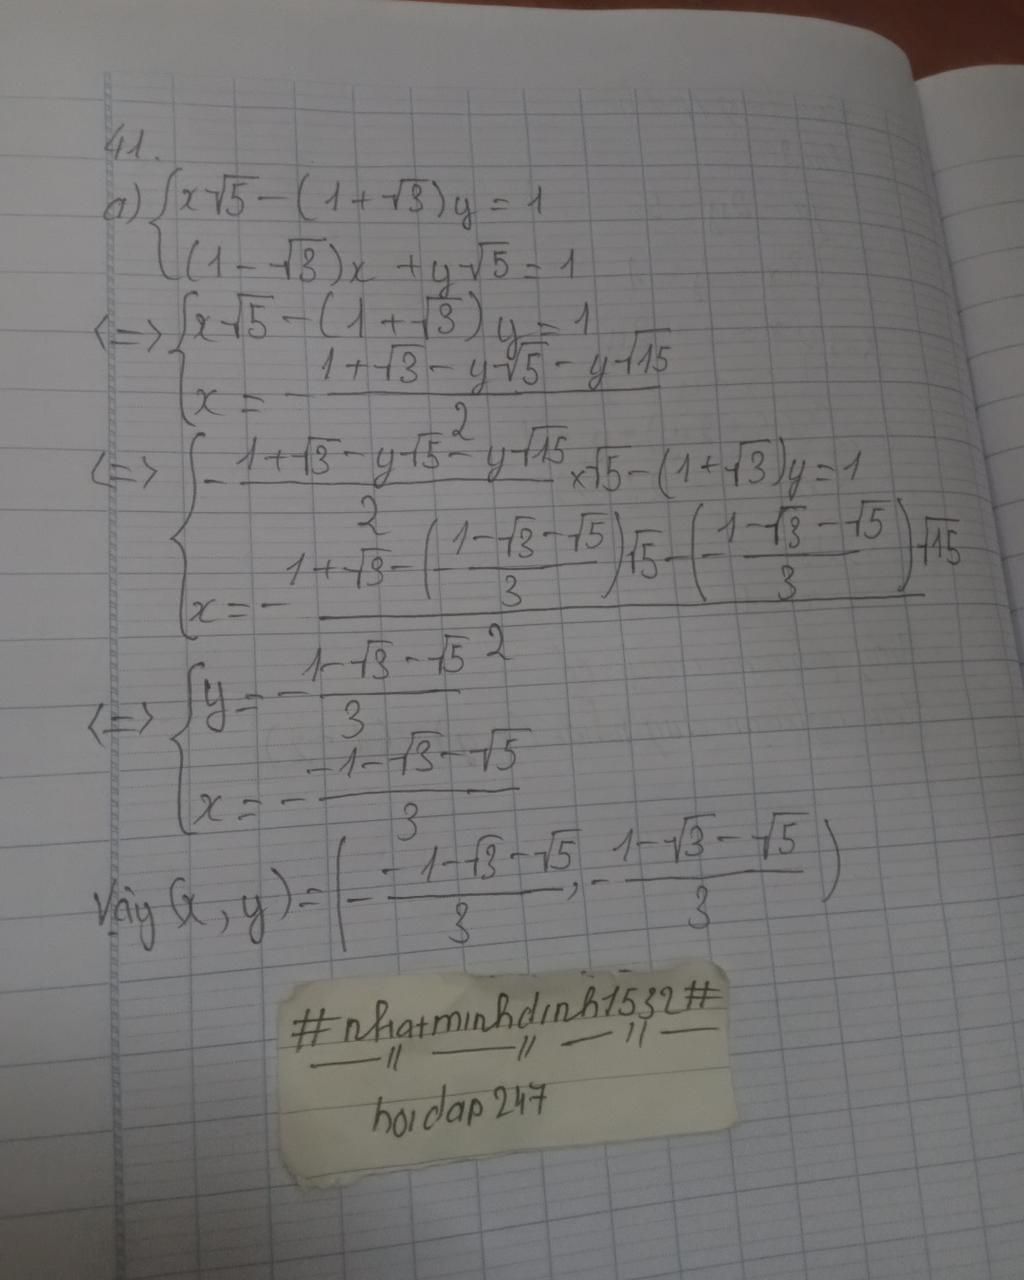 41.
a) { x√5 - (1 + √3)y = 1
(1 - √3)x + y√5 = 1
<=> { x√5 - (1 + √3)y = 1
x = - (1 + √3 - y√5 - y√15)/2
<=> { - (1 + √3 - y√5 - y√15)/2 x √5 - (1 + √3)y = 1
x = - (1 + √3 - (- (1 - √3 - √5)/3)√5 - (- (1 - √3 - √5)/3)√15)/2
<=> { y = - (1 - √3 - √5)/3
x = - (-1 - √3 - √5)/3
Vậy (x, y) = (- (-1 - √3 - √5)/3, - (1 - √3 - √5)/3)
#nhatminhdinh1532#
hoidap247